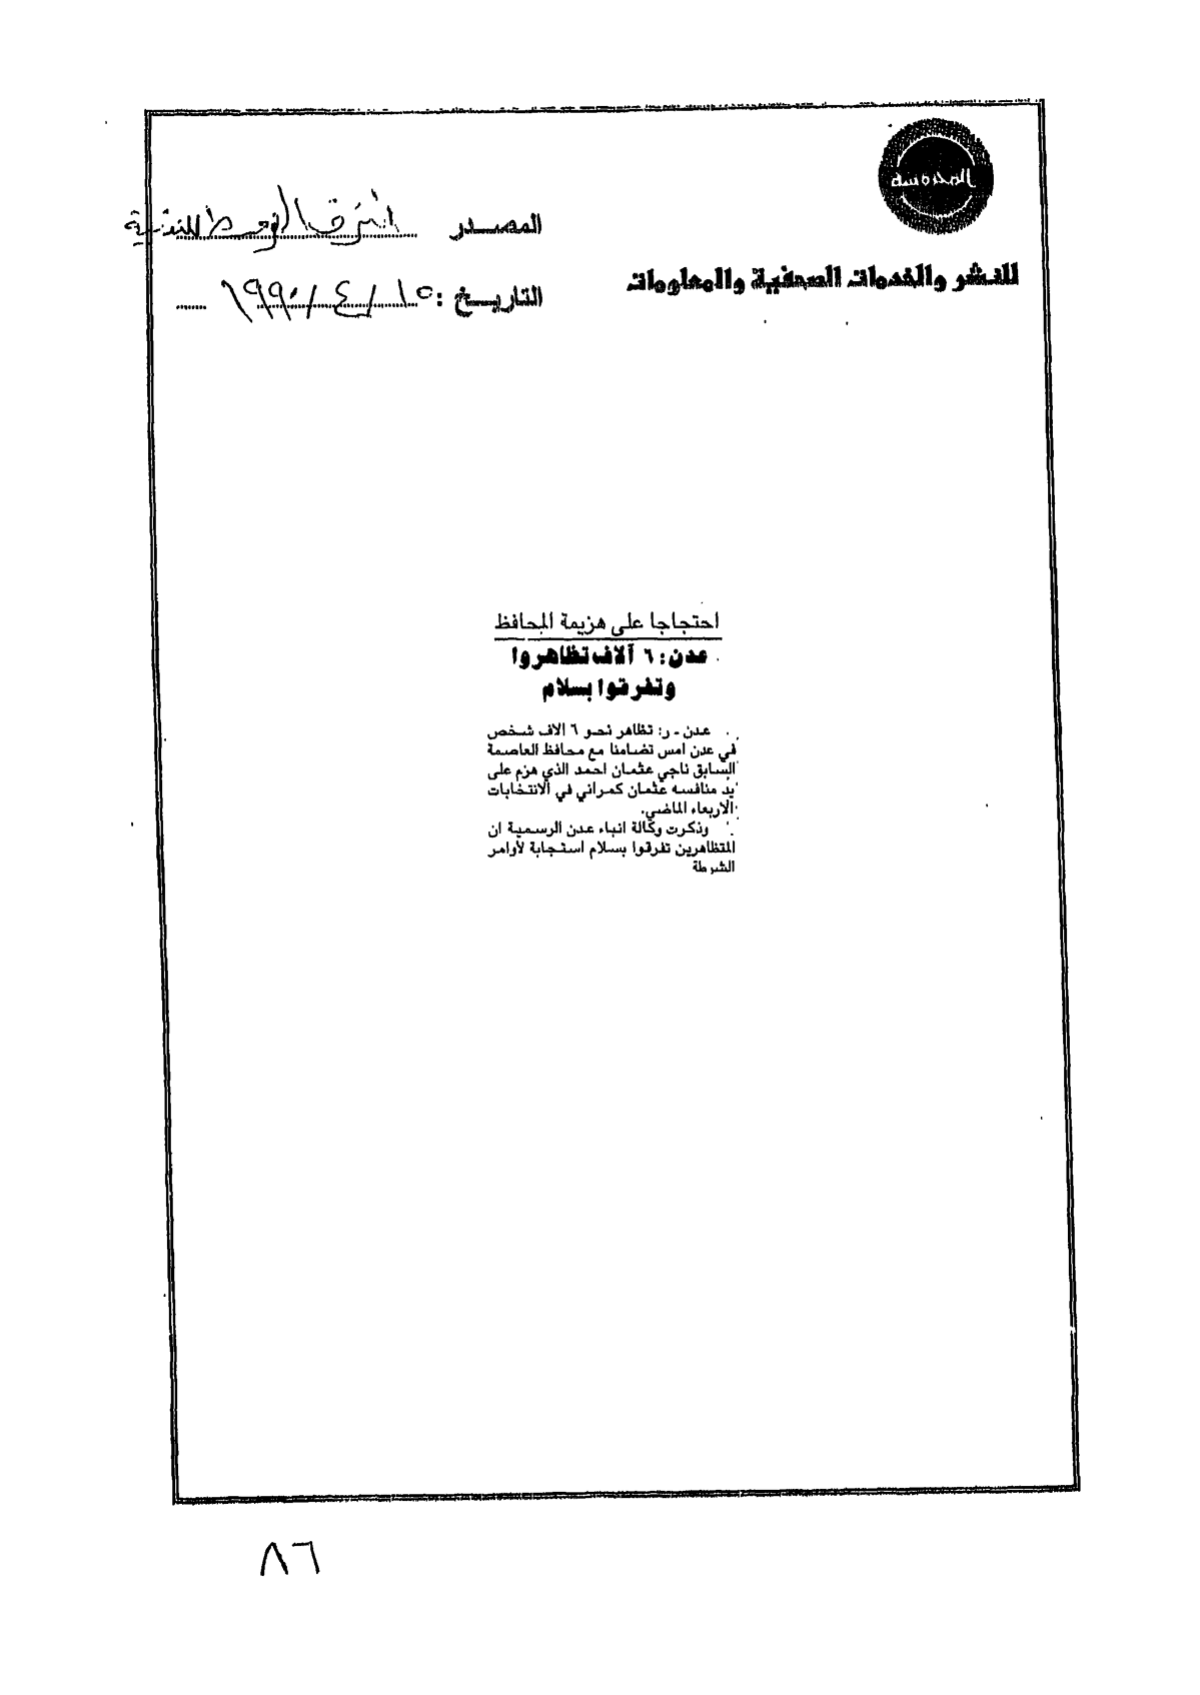 المحروسة
للنشر والخدمات الصحفية والمعلومات
المصدر الشرق الاوسط اللندنية
التاريخ : ١٥ / ٤ / ١٩٩٠
احتجاجا على هزيمة المحافظ
عدن: ٦ آلاف تظاهروا
وتفرقوا بسلام
عدن - ر: تظاهر نحو ٦ الاف شخص
في عدن امس تضامنا مع محافظ العاصمة
السابق ناجي عثمان احمد الذي هزم على
يد منافسه عثمان كمراني في الانتخابات
الاربعاء الماضي.
وذكرت وكالة انباء عدن الرسمية ان
المتظاهرين تفرقوا بسلام استجابة لأوامر
الشرطة
٨٦